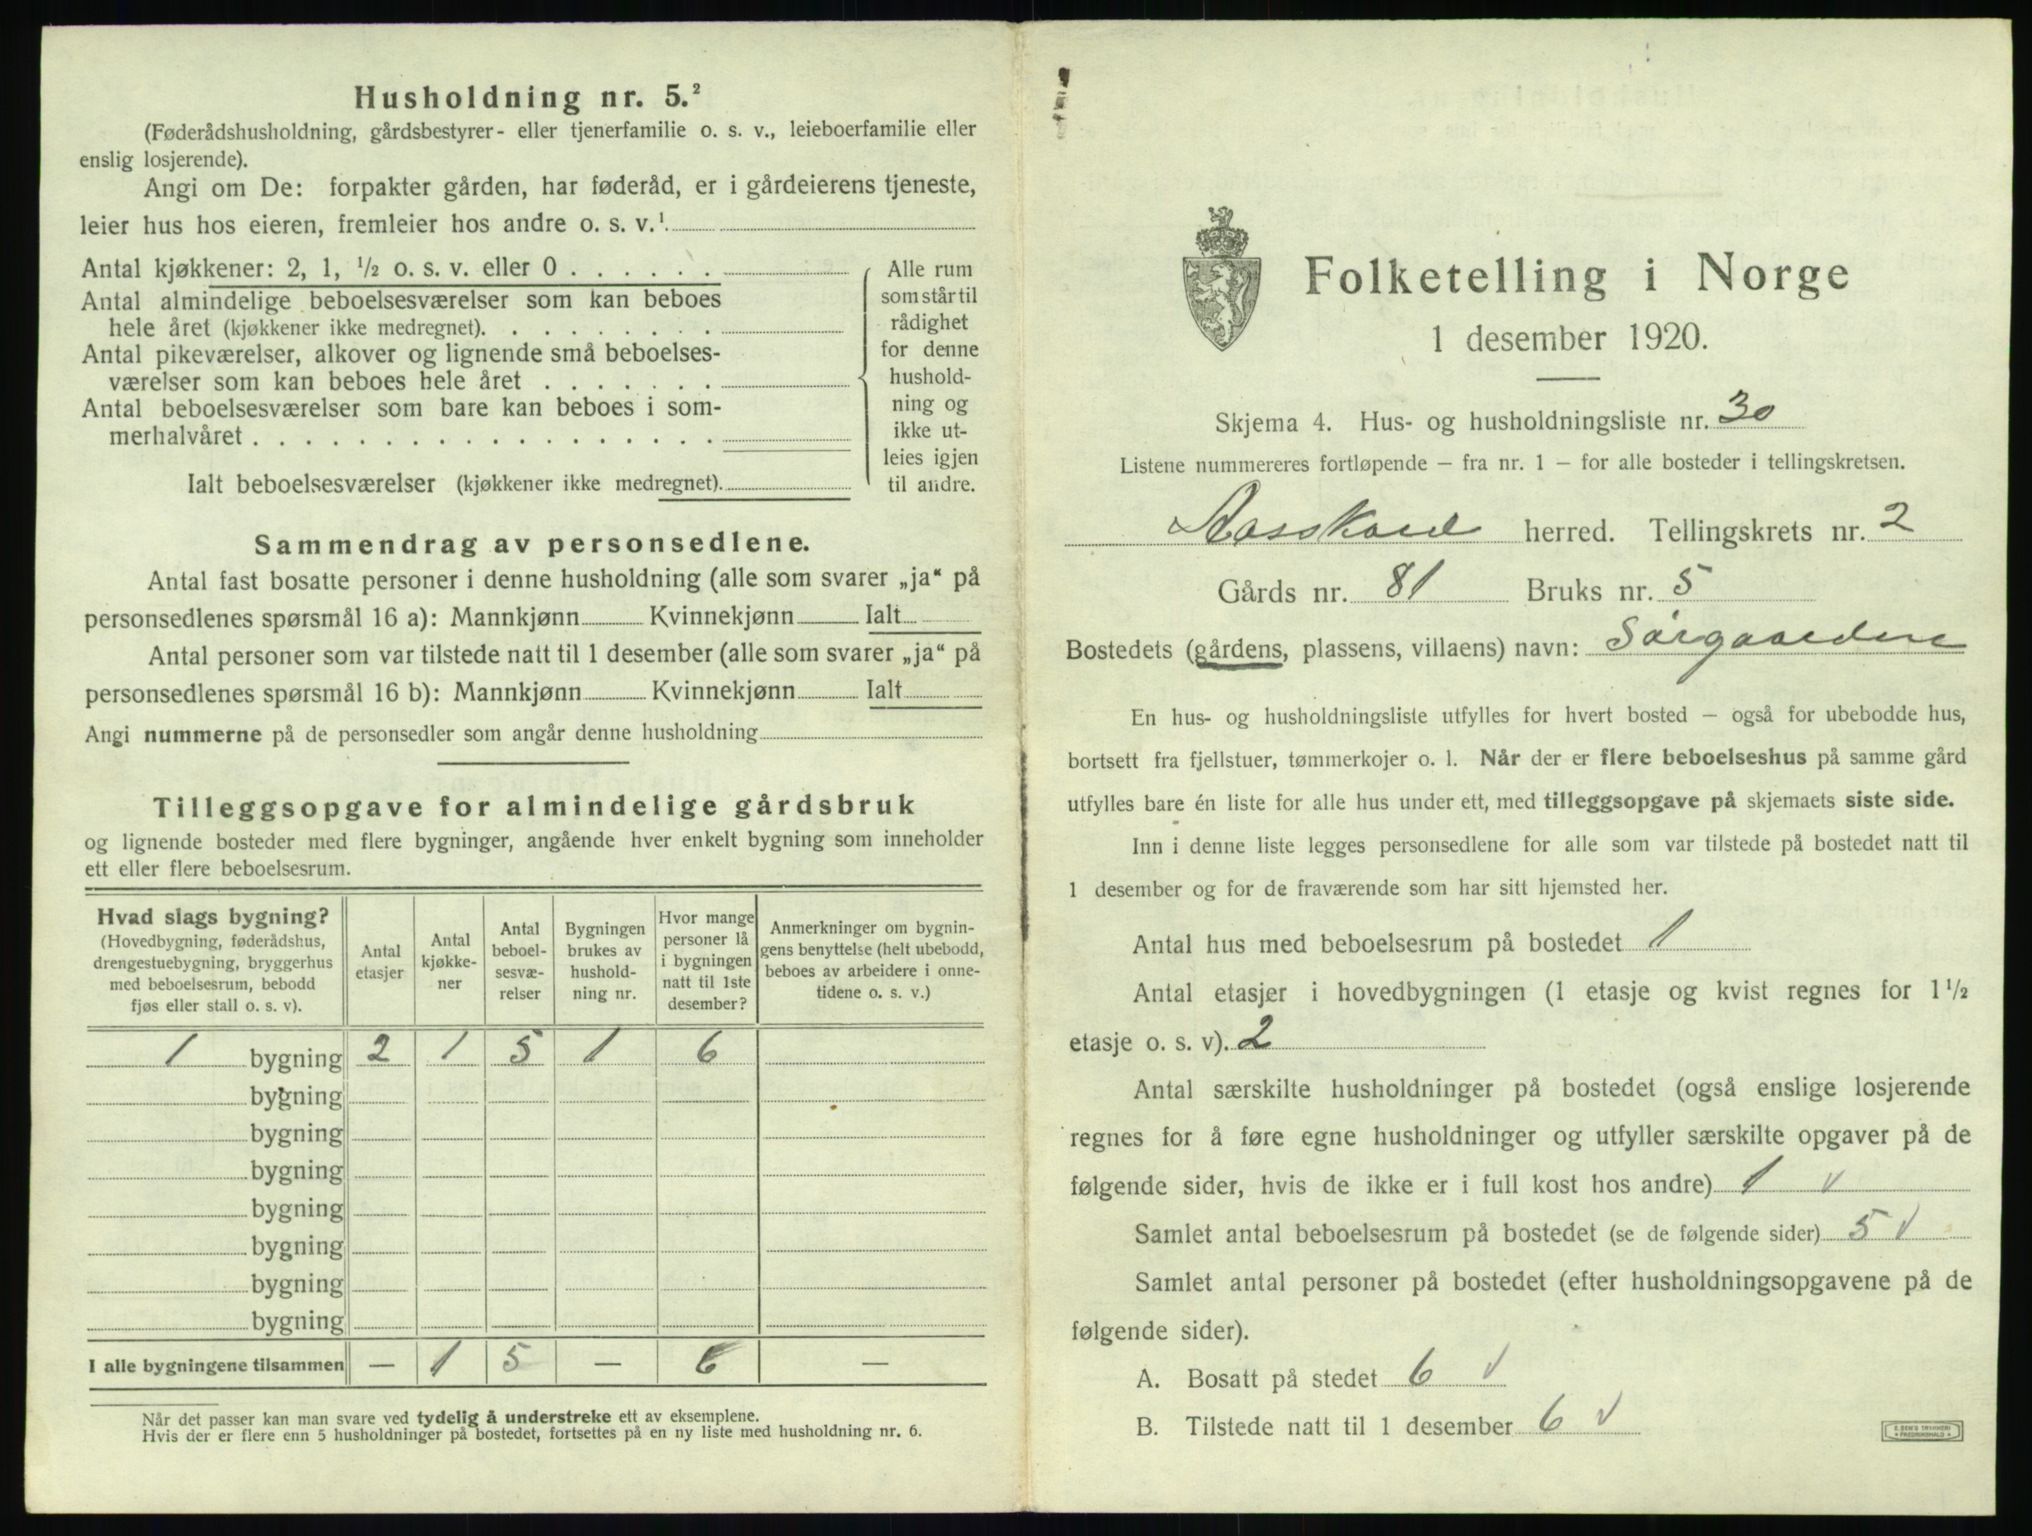 Husholdning nr. 5.²
(Føderådshusholdning, gårdsbestyrer- eller tjenerfamilie o. s. v., leieboerfamilie eller
enslig losjerende).
Angi om De: forpakter gården, har føderåd, er i gårdeierens tjeneste,
leier hus hos eieren, fremleier hos andre o. s. v.¹
Antal kjøkkener: 2, 1, ½ o. s. v. eller 0 . . . . . .
Antal almindelige beboelsesværelser som kan beboes
hele året (kjøkkener ikke medregnet). . . . . . . . .
Antal pikeværelser, alkover og lignende små beboelses-
værelser som kan beboes hele året . . . . . . .
Antal beboelsesværelser som bare kan beboes i som-
merhalvåret . . . . . . . . . . . . . . . . . .
Ialt beboelsesværelser (kjøkkener ikke medregnet).
Alle rum
som står til
rådighet
for denne
hushold-
ning og
ikke ut-
leies igjen
til andre.
Sammendrag av personsedlene.
Antal fast bosatte personer i denne husholdning (alle som svarer „ja“ på
personsedlenes spørsmål 16 a): Mannkjønn Kvinnekjønn Ialt
Antal personer som var tilstede natt til 1 desember (alle som svarer „ja“ på
personsedlenes spørsmål 16 b): Mannkjønn Kvinnekjønn Ialt
Angi nummerne på de personsedler som angår denne husholdning
Tilleggsopgave for almindelige gårdsbruk
og lignende bosteder med flere bygninger, angående hver enkelt bygning som inneholder
ett eller flere beboelsesrum.
Hvad slags bygning?
(Hovedbygning, føderådshus,
drengestuebygning, bryggerhus
med beboelsesrum, bebodd
fjøs eller stall o. s. v).
Antal
etasjer
Antal
kjøkke-
ner
Antal
beboel-
sesvæ-
relser
Bygningen
brukes av
hushold-
ning nr.
Hvor mange
personer lå
i bygningen
natt til 1ste
desember?
Anmerkninger om bygnin-
gens benyttelse (helt ubebodd,
beboes av arbeidere i onne-
tidene o. s. v.)
1 bygning 2 1 5 1 6
bygning
bygning
bygning
bygning
bygning
bygning
bygning
I alle bygningene tilsammen — 1 5 — 6 —
Når det passer kan man svare ved tydelig å understreke ett av eksemplene.
Hvis der er flere enn 5 husholdninger på bostedet, fortsettes på en ny liste med husholdning nr. 6.
Folketelling i Norge
1 desember 1920.
Skjema 4. Hus- og husholdningsliste nr. 30
Listene nummereres fortløpende — fra nr. 1 — for alle bosteder i tellingskretsen.
Aasskard herred. Tellingskrets nr. 2
Gårds nr. 81 Bruks nr. 5
Bostedets (gårdens, plassens, villaens) navn: Sørgaardene
En hus- og husholdningsliste utfylles for hvert bosted — også for ubebodde hus,
bortsett fra fjellstuer, tømmerkojer o. l. Når der er flere beboelseshus på samme gård
utfylles bare én liste for alle hus under ett, med tilleggsopgave på skjemaets siste side.
Inn i denne liste legges personsedlene for alle som var tilstede på bostedet natt til
1 desember og for de fraværende som har sitt hjemsted her.
Antal hus med beboelsesrum på bostedet 1
Antal etasjer i hovedbygningen (1 etasje og kvist regnes for 1½
etasje o. s. v). 2
Antal særskilte husholdninger på bostedet (også enslige losjerende
regnes for å føre egne husholdninger og utfyller særskilte opgaver på de
følgende sider, hvis de ikke er i full kost hos andre) 1 √
Samlet antal beboelsesrum på bostedet (se de følgende sider) 5 √
Samlet antal personer på bostedet (efter husholdningsopgavene på de
følgende sider).
A. Bosatt på stedet 6 √
B. Tilstede natt til 1 desember 6 √